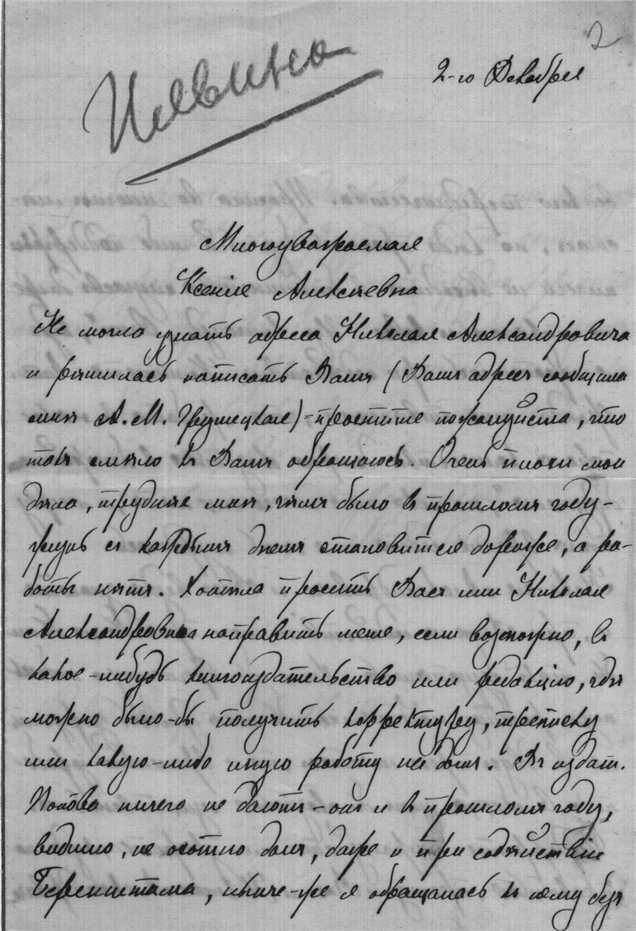 2
2-го Декабря
Многоуважаемая
Ксенiя Алексѣевна
Не могла узнать адреса Николая Александровича
и рѣшилась написать Вамъ (Вашъ адресъ сообщила
мнѣ А. М. Грушецкая) - простите пожалуйста, что
такъ смѣло къ Вамъ обращаюсь. Очень плохи мои
дѣла, труднѣе мнѣ, чѣмъ было въ прошломъ году -
жизнь съ каждымъ днемъ становится дороже, а ра-
боты нѣтъ. Хотѣла просить Васъ или Николая
Александровича направить меня, если возможно, въ
какое-нибудь книгоиздательство или редакцiю, гдѣ
можно было-бы получить корректуру, переписку
или какую-либо иную работу на домъ. Въ издат.
Попово ничего не даютъ - онъ и въ прошломъ году,
видимо, не охотно далъ, даже и при содѣйствiи
Беренштама, нынче-же я обращалась къ нему безъ